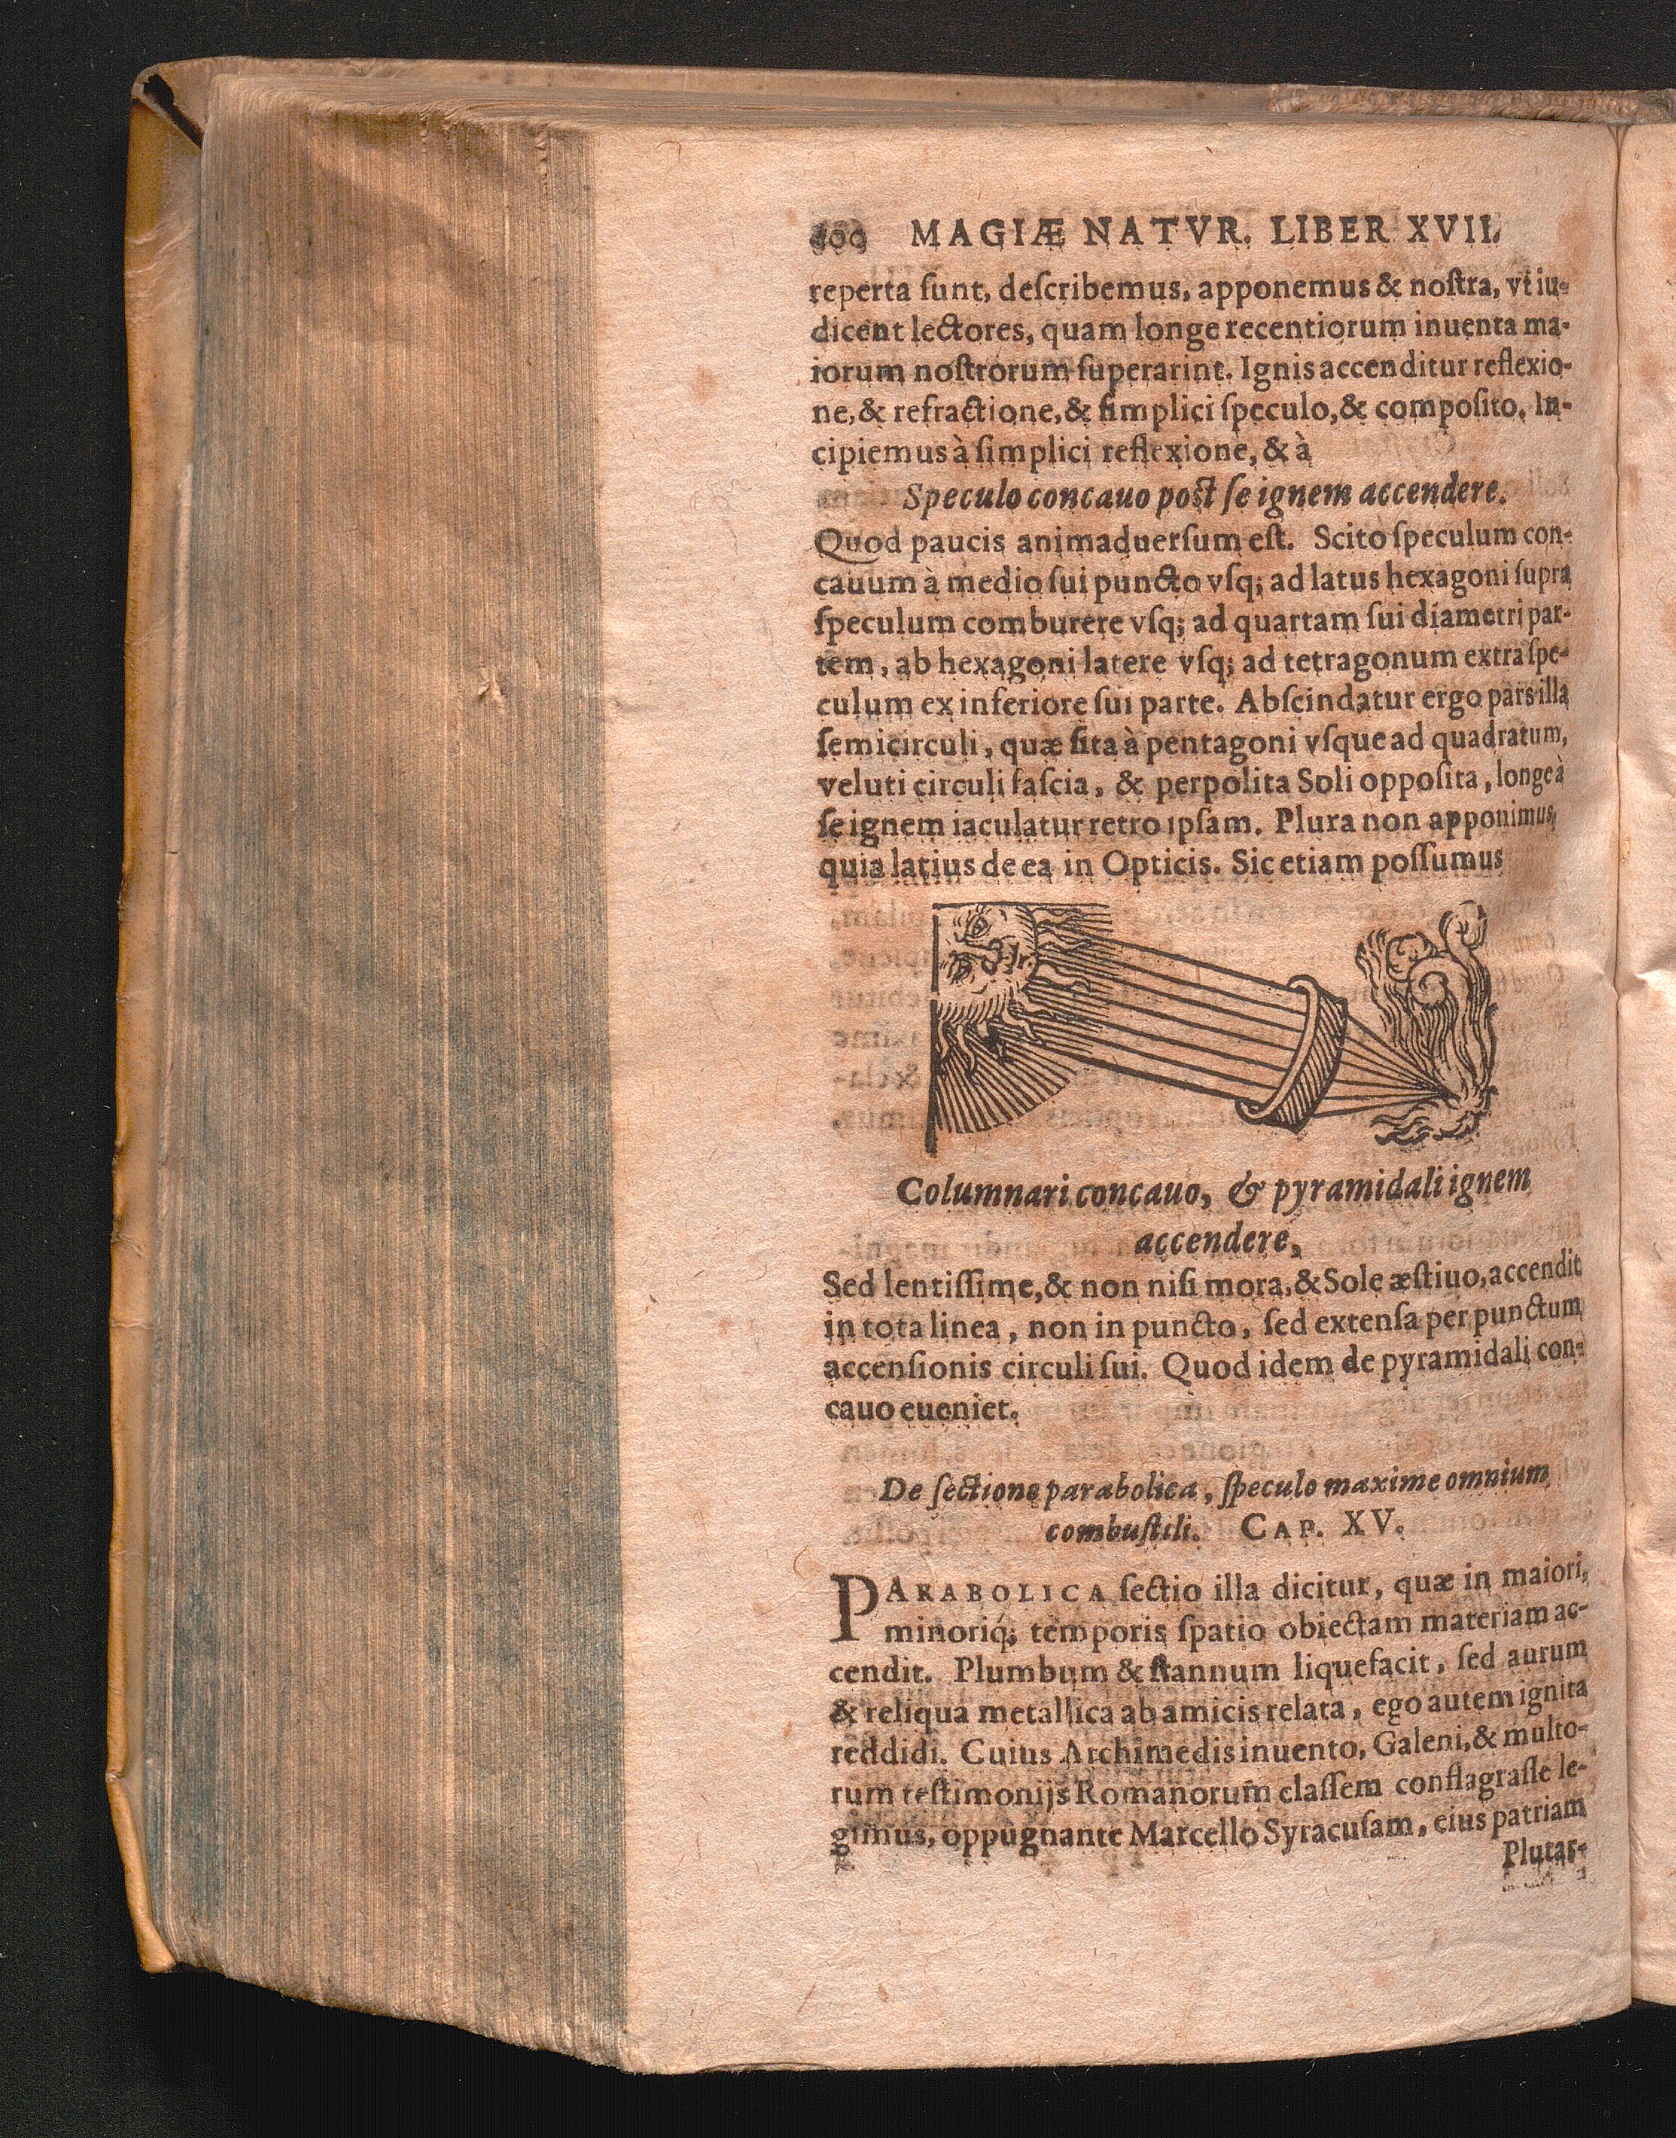 600 MAGIÆ NATVR. LIBER XVII.
reperta ſunt, deſcribemus, apponemus & noſtra, vt iu-
dicent lectores, quam longe recentiorum inuenta ma-
iorum noſtrorum ſuperarint. Ignis accenditur reflexio-
ne, & refractione, & ſimplici ſpeculo, & compoſito. In-
cipiemus à ſimplici reflexione, & à
Speculo concauo poſt ſe ignem accendere.
Quod paucis animaduerſum eſt. Scito ſpeculum con-
cauum à medio ſui puncto vſq; ad latus hexagoni ſupra
ſpeculum comburere vſq; ad quartam ſui diametri par-
tem, ab hexagoni latere vſq; ad tetragonum extra ſpe-
culum ex inferiore ſui parte. Abſcindatur ergo pars illa
ſemicirculi, quæ ſita à pentagoni vſque ad quadratum,
veluti circuli faſcia, & perpolita Soli oppoſita, longe à
ſe ignem iaculatur retro ipſam. Plura non apponimus,
quia latius de ea in Opticis. Sic etiam poſſumus
Columnari concauo, & pyramidali ignem
accendere,
Sed lentiſſime, & non niſi mora, & Sole æſtiuo, accendit
in tota linea, non in puncto, ſed extenſa per punctum
accenſionis circuli ſui. Quod idem de pyramidali con-
cauo eueniet.
De ſectione parabolica, ſpeculo maxime omnium
combuſtili. CAP. XV.
PARABOLICA ſectio illa dicitur, quæ in maiori,
minoriq́; temporis ſpatio obiectam materiam ac-
cendit. Plumbum & ſtannum liquefacit, ſed aurum
& reliqua metallica ab amicis relata, ego autem ignita
reddidi. Cuius Archimedis inuento, Galeni, & multo-
rum teſtimonijs Romanorum claſſem conflagraſſe le-
gimus, oppugnante Marcello Syracuſam, eius patriam
Plutar-